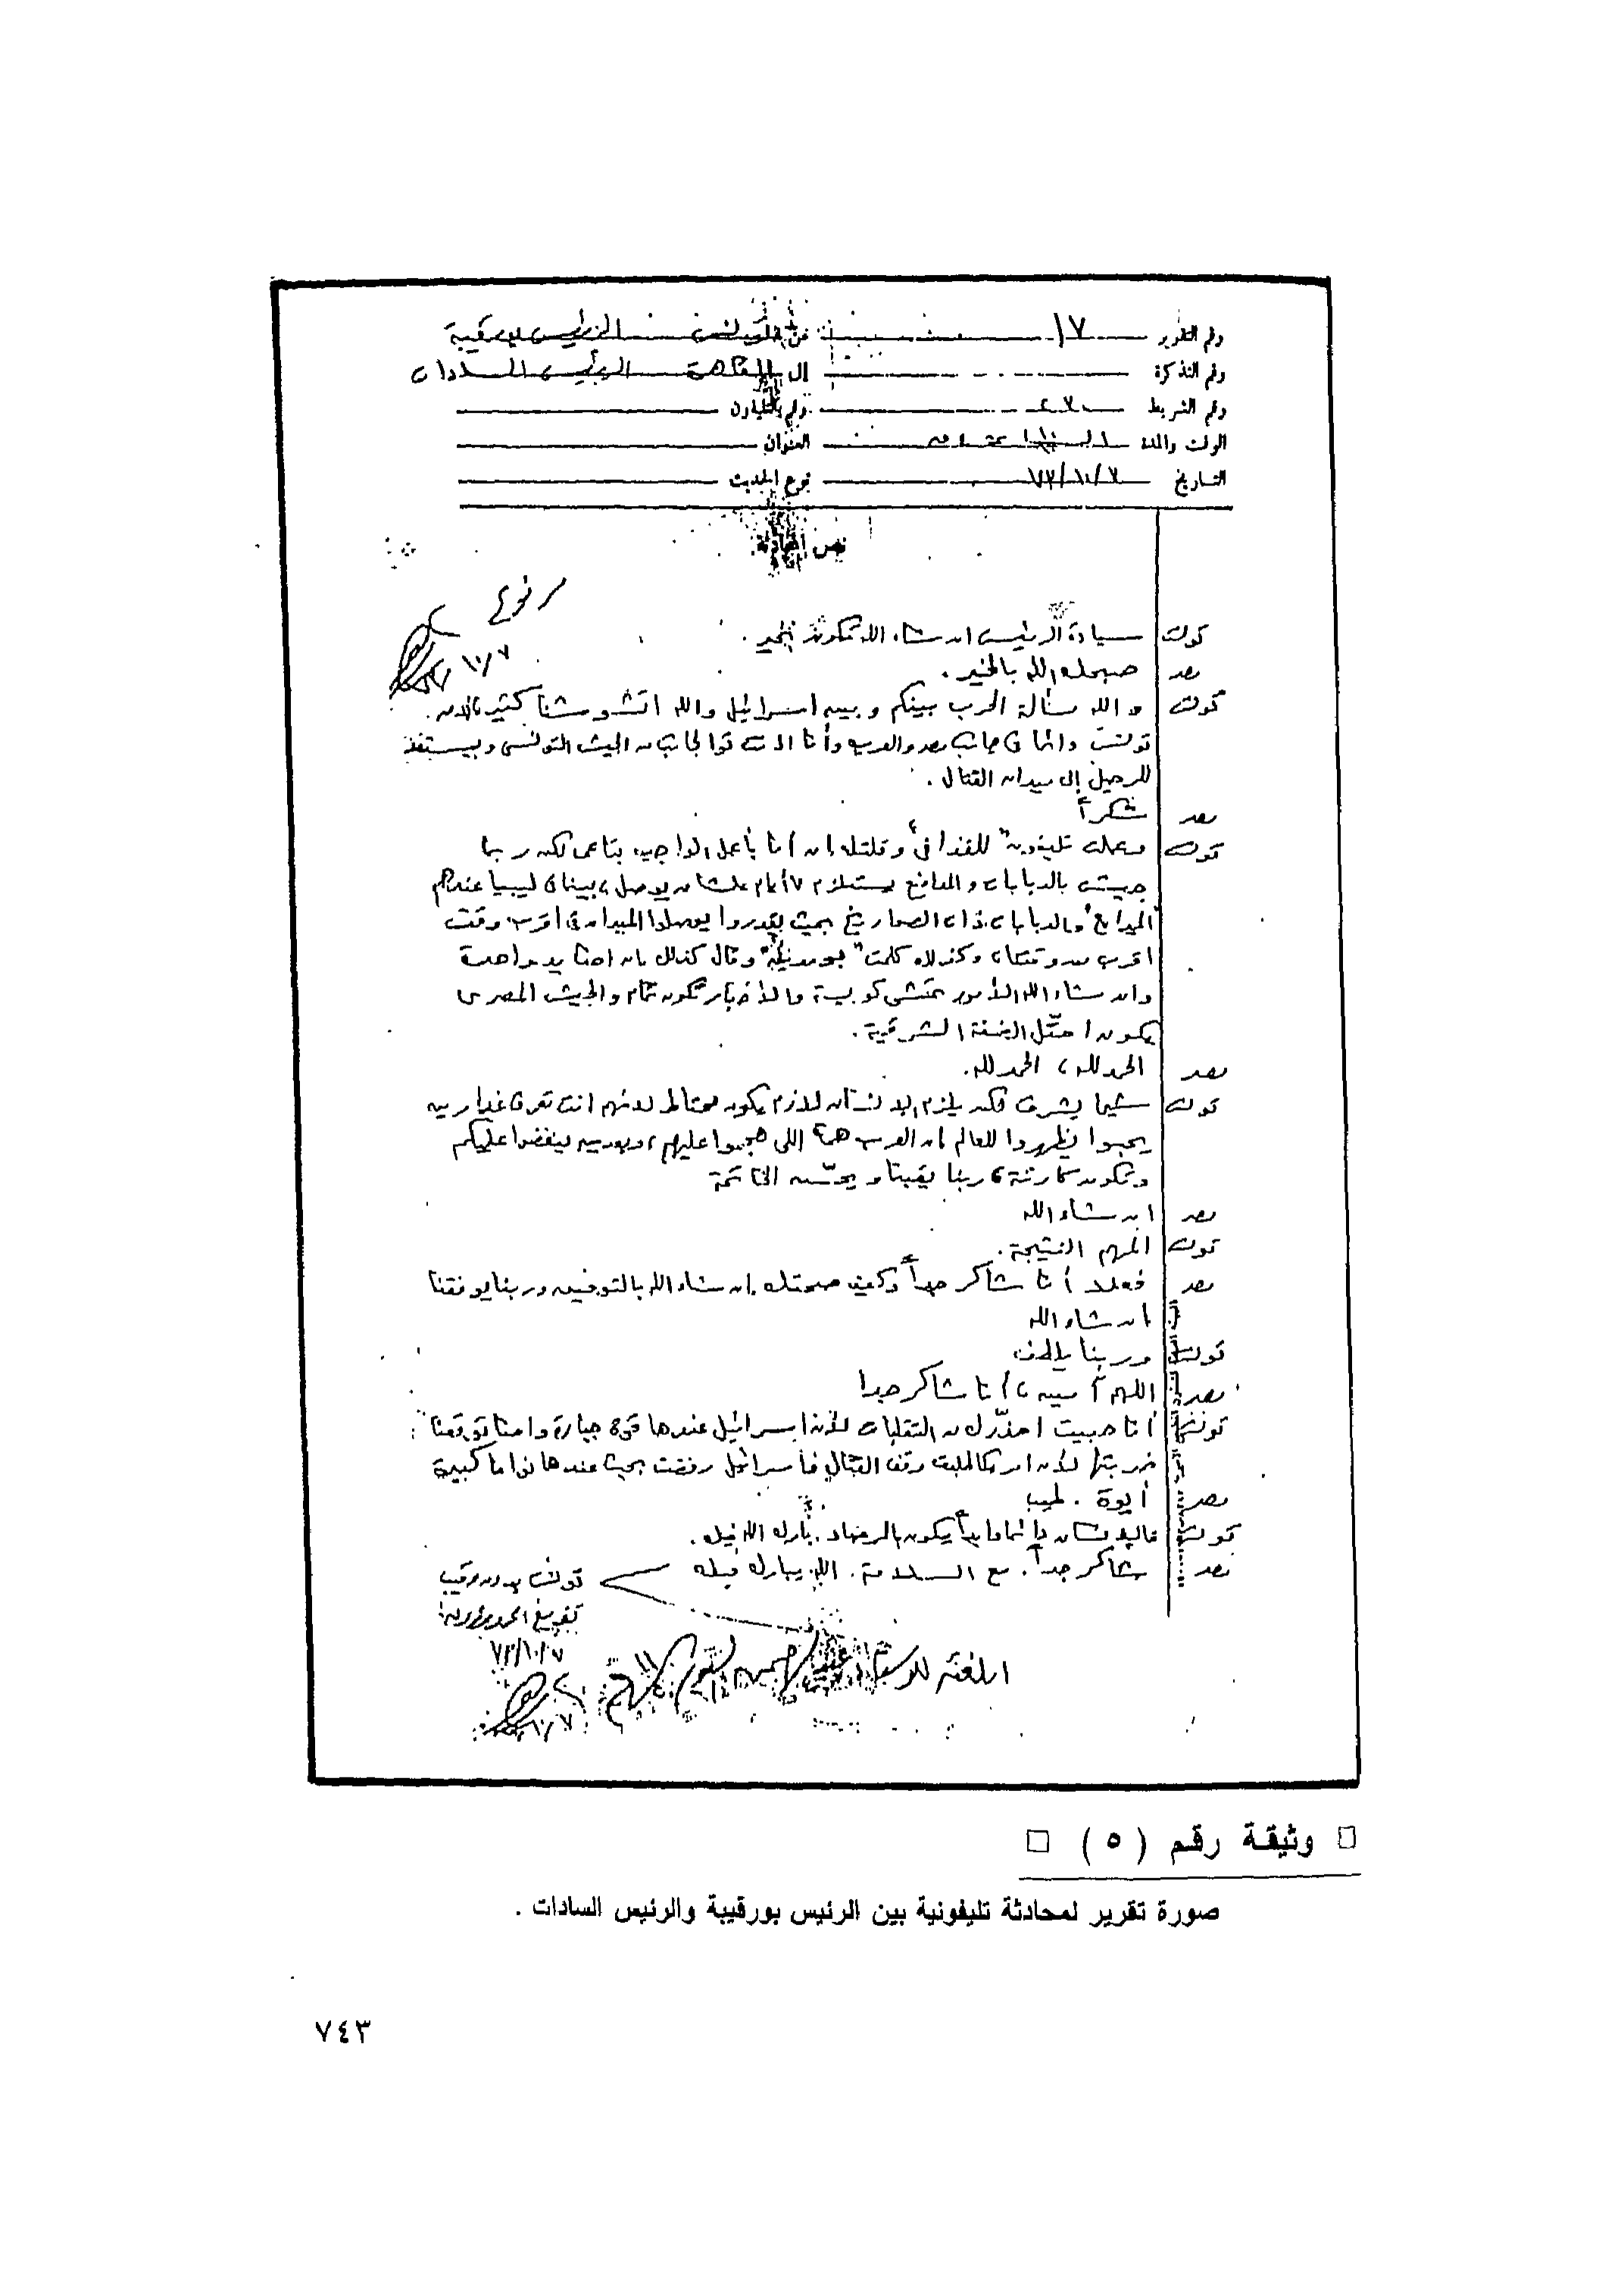 رقم التقرير ١٧ من تونس الرئيس بورقيبة
رقم التذكرة إلى القاهرة الرئيس السادات
رقم الشريط رقم التليفون
الوقت والمدة العنوان
التاريخ ٧٣/١٠/٧ نوع الحديث
نص المحادثة
مرفوع
١٠/٧
تونس سيادة الرئيس ان شاء الله تكون بخير.
مصر صبحك الله بالخير.
تونس والله مسألة الحرب بينكم وبين اسرائيل والله اتشوشنا كثير
تونس دائما في جانب مصر والعرب وأنا الآن توا الجيش التونسى وبيستعد
للرحيل إلى ميدان القتال.
مصر شكراً
تونس وعملت تليفون "للقذافي" وقلتله ان أنا باعمل الواجب بتاعى لكن ربما
جيش بالدبابات والمدافع يستلزم ٧ أيام علشان يوصل، بينما في ليبيا عندهم
المدافع والدبابات ذات الصواريخ بحيث يقدروا يوصلوا الميدان في اقرب وقت
اقرب من وقتنا، وكذلك كلمت "بومدين" وقال كذلك بأن احنا يد واحدة
وان شاء الله الأمور تمشى كويسة والأخبار تكون تمام والجيش المصرى
يكون احتل الضفة الشرقية.
مصر الحمد لله، الحمد لله.
تونس شيئا يشرف لكن يلزم الانسان لازم يكون محتاط لانهم انت تعرف غدارين
يحبوا يظهروا للعالم ان العرب هما اللى هجموا عليهم، وبعدين ينقضوا عليكم
وتكون كارثة، ربنا يقينا ويحسن الخاتمة
مصر ان شاء الله
تونس المهم النتيجة.
مصر فعلا أنا شاكر جداً وكيف صحتك ان شاء الله بالتوفيق وربنا يوفقنا
ان شاء الله
تونس وربنا يلطف
مصر اللهم آمين، أنا شاكر جدا
تونس أنا حبيت احذرك من التقلبات لأن اسرائيل عندها قوة جبارة واحنا توقعنا
ضربتها لأن امريكا طلبت وقف القتال فأسرائيل رفضت بحيث عندها نواما كبيرة
مصر أيوة. طيب
تونس فالانسان دائما يكون بالمرصاد. بارك الله فيك.
مصر شاكر جداً. مع السلامة. الله يبارك فيك
تونس بدون رقيب
تفريغ
٧٣/١٠/٧
□ وثيقة رقم (٥) □
صورة تقرير لمحادثة تليفونية بين الرئيس بورقيبة والرئيس السادات .
٧٤٣